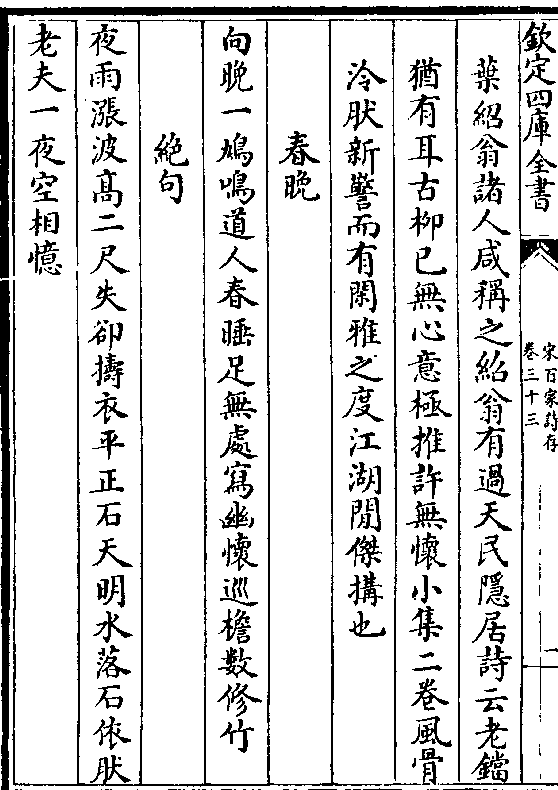 欽定四庫全書
宋百家詩存
卷三十三
一
葉紹翁諸人咸稱之紹翁有過天民隱居詩云老鐺
猶有耳古柳已無心意極推許無懷小集二卷風骨
泠肰新警而有閑雅之度江湖間傑搆也
春晚
向晚一鳩鳴道人春睡足無處寫幽懷巡檐數修竹
絶句
夜雨漲波髙二尺失卻擣衣平正石天明水落石依肰
老夫一夜空相憶